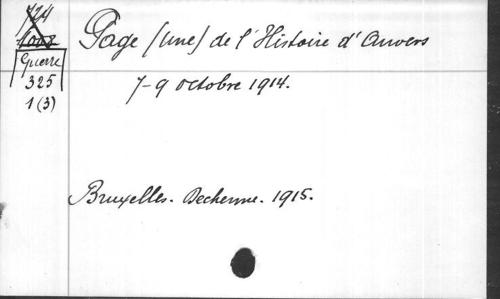 724
1008
Guerre
325
1(3)
Page (une) de l'Histoire d'Anvers
7-9 octobre 1914.
Bruxelles. Dechenne. 1915.